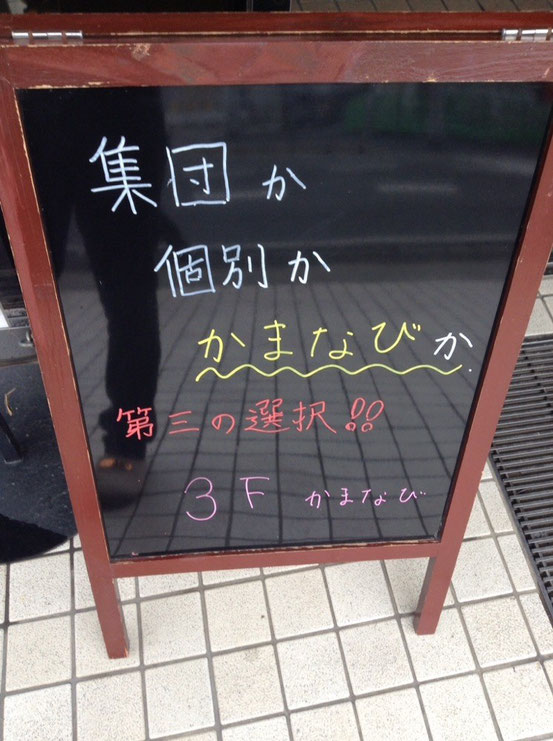 集団か
個別か
かまなびか.
第三の選択!!
3F かまなび